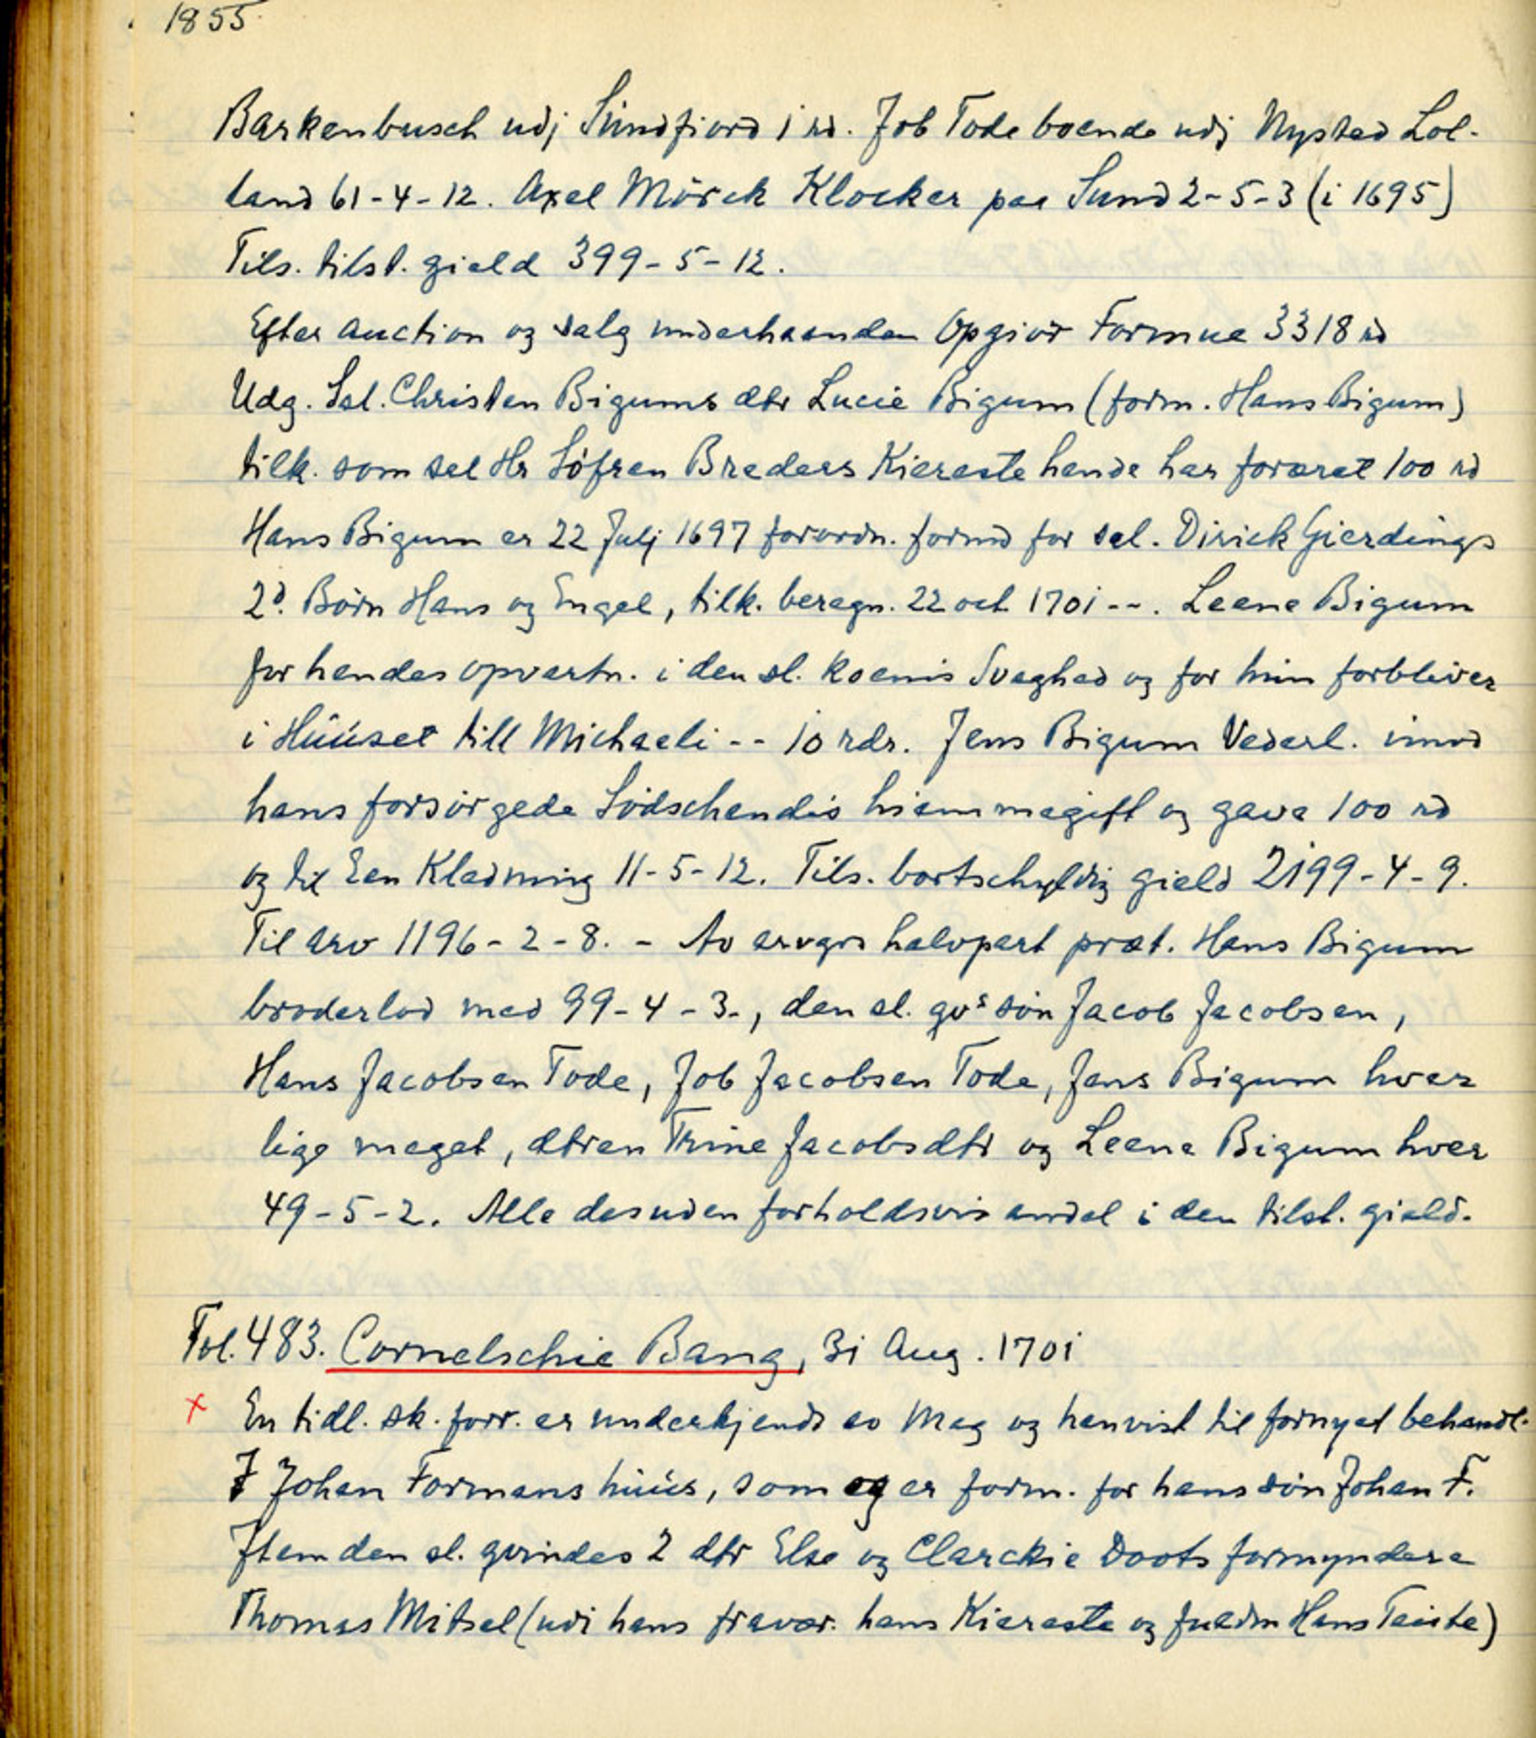 1855
Barkenbusch udj Sundfiord 1 rd. Job Tode boende udj Nysted Lol-
land 61-4-12. Axel Mörck Klocker paa Sund 2-5-3 (i 1695)
Tils. tilst. gield 399-5-12.
Efter auction og salg underhaanden Opgiör Formue 3318 rd
Udg. Sal. Christen Bigums dtr Lucie Bigum (form. Hans Bigum)
tilk. som sal Hr Söfren Breders Kiereste hende har foræret 100 rd
Hans Bigum er 22 Julj 1697 forordn. formd for sal. Dirick Gierdings
2d. Börn Hans og Engel, tilk. beregn. 22 oct 1701 --. Leene Bigum
for hendes opvartn. i den sl. koenis Svaghed og for hun forbliver
i Hüüset till Michaeli -- 10 rdr. Jens Bigum Vederl. imod
hans forsörgede Södschendis hiemmegift og gave 100 rd
og til Een Kledning 11-5-12. Tils. bortschyldig gield 2199-4-9.
Til arv 1196-2-8. - Av arvgrs halvpart præt. Hans Bigum
broderlod med 99-4-3-, den sl. qvs sön Jacob Jacobsen,
Hans Jacobsen Tode, Job Jacobsen Tode, Jens Bigum hver
lige meget, dtren Trine Jacobsdtr og Leene Bigum hver
49-5-2. Alle desuden forholdsvis andel i den tilst. gield.
Fol. 483. Cornelschie Bang, 31 Aug. 1701
x En tidl. sk. forr. er underkjendt av Mag og henvist til fornyet behandl.
I Johan Formans hüüs, som og er form. for hans sön Johan F.
Item den sl. qvindes 2 dtr Else og Clarckie Doots formyndere
Thomas Mitsel (udi hans fravær. hans Kiereste og fuldm Hans Teiste)